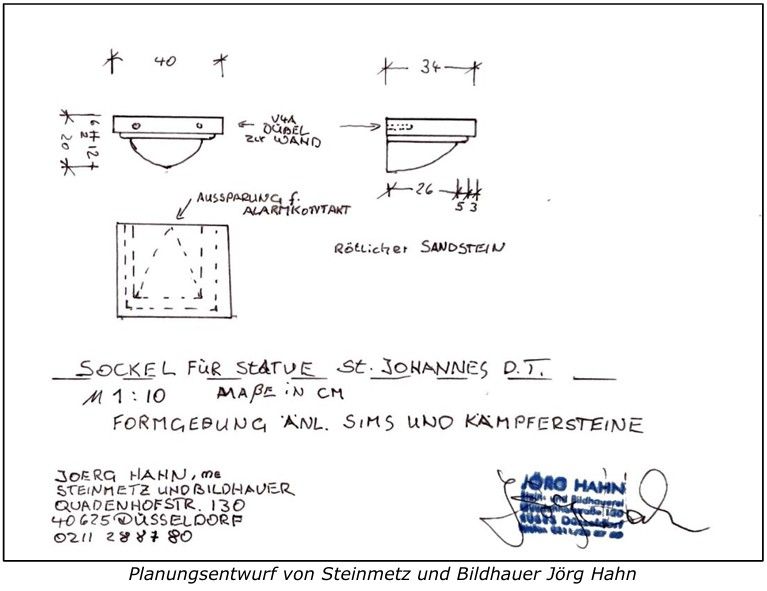 40
34
6 2 12
20
V4A
DÜBEL
ZUR WAND
26
5 3
AUSSPARUNG f.
ALARMKONTAKT
Rötlicher SANDSTEIN
SOCKEL FÜR STATUE St. JOHANNES D.T.
M 1:10 MAßE IN CM
FORMGEBUNG ÄNL. SIMS UND KÄMPFERSTEINE
JOERG HAHN, me
STEINMETZ UND BILDHAUER
QUADENHOFSTR. 130
40625 DÜSSELDORF
0211 288780
JÖRG HAHN
Stein- und Bildhauerei
Quadenhofstraße 130
40625 Düsseldorf
Planungsentwurf von Steinmetz und Bildhauer Jörg Hahn